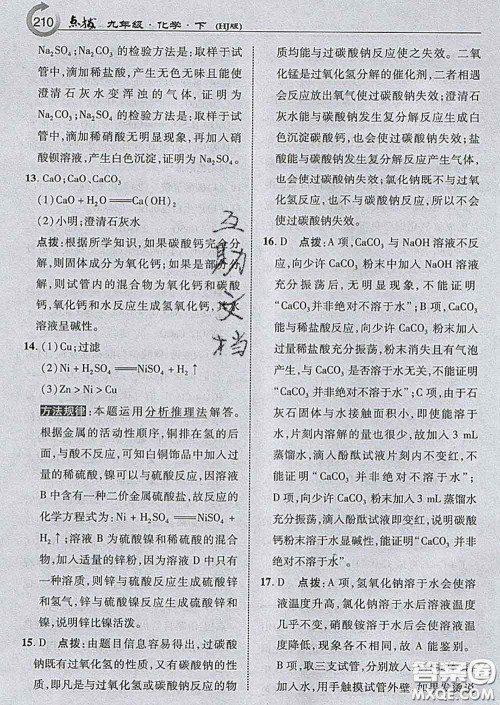 210 点拨 九年级·化学·下 (HJ版)
Na₂SO₄、Na₂CO₃的检验方法是：取样于试
管中，滴加稀盐酸，产生无色无味且能使
澄清石灰水变浑浊的气体，证明为
Na₂CO₃；滴加稀硝酸无明显现象，再加入硝
酸钡溶液，产生白色沉淀，证明为Na₂SO₄。
13. CaO；CaO、CaCO₃
(1)CaO+H₂O═Ca(OH)₂
(2)小明；澄清石灰水
点拨：根据所学知识，如果碳酸钙完全分
解，则固体成分为氧化钙；如果部分分
解，则试管内的混合物为氧化钙和碳酸
钙，氧化钙和水反应生成氢氧化钙，其水
溶液呈碱性。
14. (1)Cu；过滤
(2)Ni+H₂SO₄═NiSO₄+H₂↑
(3)Zn>Ni>Cu
方法规律：本题运用分析推理法解答。
根据金属的活动性顺序，铜排在氢的后
面，与酸不反应，可知白铜饰品中加入过
量的稀硫酸，镍可以与硫酸反应，因溶液
B中含有一种二价金属硫酸盐，故反应的
化学方程式为：Ni+H₂SO₄═NiSO₄+
H₂↑；溶液B为硫酸镍和硫酸的混合溶
液，加入适量的锌粉，因为溶液D中只含
有一种溶质，则锌与硫酸反应生成硫酸锌
和氢气，锌与硫酸镍反应生成硫酸锌和
镍，说明锌比镍活泼。
15. D 点拨：由题目信息容易得出，过碳酸
钠既有过氧化氢的性质，又有碳酸钠的性
质，即凡是与过氧化氢或碳酸钠反应的物
质均能与过碳酸钠反应使之失效。二氧
化锰是过氧化氢分解的催化剂，二者相遇
会反应放出氧气使过碳酸钠失效；澄清石
灰水能与碳酸钠发生复分解反应生成碳
酸钙和氢氧化钠，也能使过碳酸钠失效；盐
酸能与碳酸钠发生复分解反应，从而使过
碳酸钠失效；氯化钠既不与过氧化
氢反应，也不与碳酸钠反应，所以不会使
过碳酸钠失效。
16. D 点拨：A项，CaCO₃与NaOH溶液不反
应，向CaCO₃粉末中加入NaOH溶液充分
振荡，无明显现象，不能证明
“CaCO₃并非绝对不溶于水”；B项，
CaCO₃能与盐酸反应，向CaCO₃粉末中加
入过量稀盐酸充分振荡，粉末消失且产生
气泡，与其是否溶于水无关，不能证明
“CaCO₃并非绝对不溶于水”；C项，由于石
灰石固体与水接触面积小，且
片刻内溶解的量很少，故加入3 mL蒸
馏水充分振荡，滴入酚酞试液，短时间内
溶液不会变红，不能证明“CaCO₃并非绝对
不溶于水”；D项，向CaCO₃粉末中加入3 mL蒸馏水
充分振荡，滴入酚酞试液即变红，说明碳酸
钙粉末部分溶于水显碱性，能证明
“CaCO₃并非绝对不溶于水”。
17. D 点拨：A项，氢氧化钠溶于水会使溶
液温度升高，硝酸铵溶于水后溶液温度降
低，氯化钠溶于水后溶液温度几乎不变。
因此，取三支试管，分别放入
加入水，用手触摸试管外壁
互助文档
答案圈